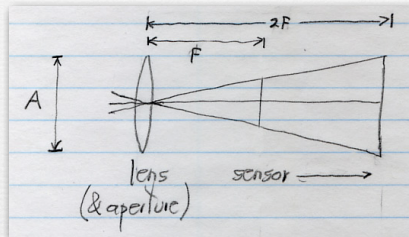 2F
F
A
lens
(& aperture)
sensor